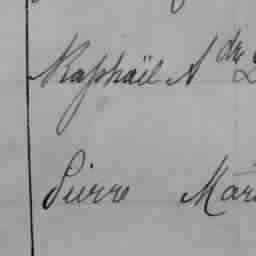 Raphaël A
Pierre Mar